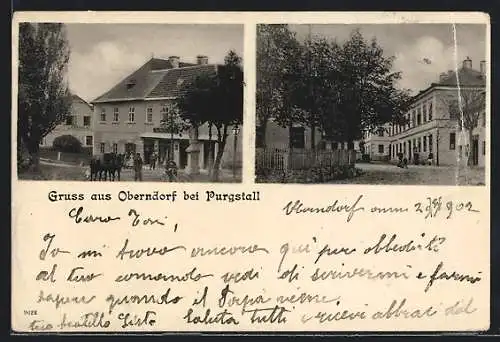 Gruss aus Oberndorf bei Purgstall
Oberndorf 902
Caro Toni,
Io mi trovo ancora qui per obbedirti
al tuo comando vedi di scrivermi e farmi
sapere quando il Papà viene.
tuo fratello Sisto Saluta tutti e ricevi abbracci dal